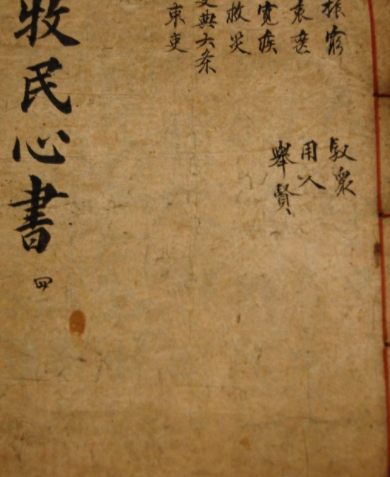 振窮
哀喪
寬疾
救災
吏典六条
束吏
馭衆
用人
舉賢
牧民心書 四